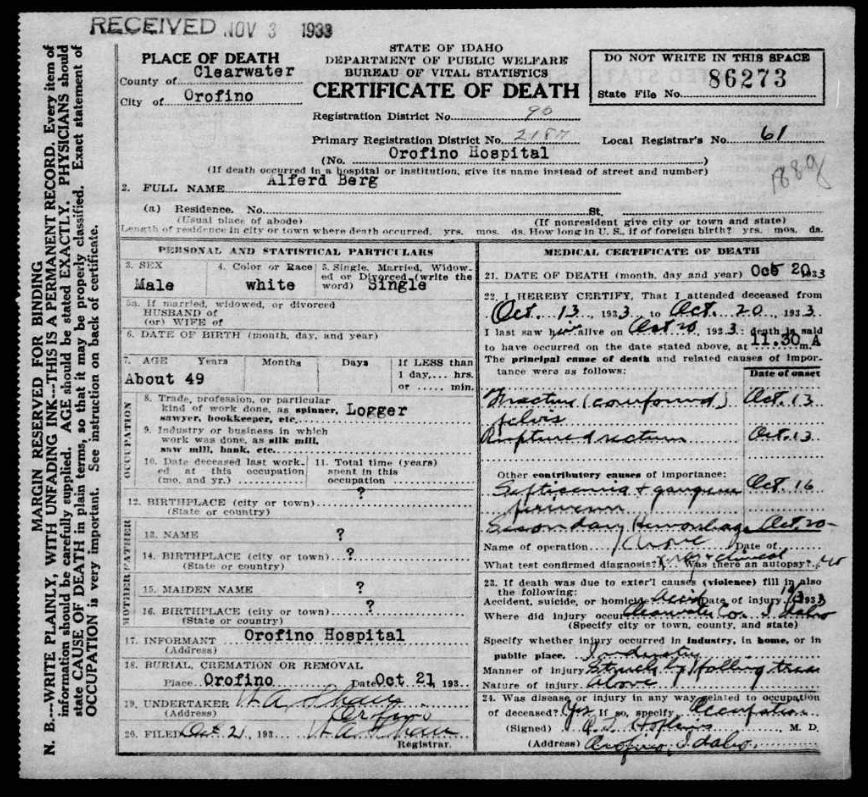 RECEIVED NOV 3 1933
STATE OF IDAHO
DEPARTMENT OF PUBLIC WELFARE
BUREAU OF VITAL STATISTICS
CERTIFICATE OF DEATH
PLACE OF DEATH
County of Clearwater
City of Orofino
DO NOT WRITE IN THIS SPACE
State File No. 86273
Registration District No. 90
Primary Registration District No. 2187 Local Registrar's No. 61
(No. Orofino Hospital )
(If death occurred in a hospital or institution, give its name instead of street and number)
1889
2. FULL NAME Alferd Berg
(a) Residence. No. St.
(Usual place of abode) (If nonresident give city or town and state)
Length of residence in city or town where death occurred, yrs. mos. ds. How long in U. S., if of foreign birth? yrs. mos. ds.
PERSONAL AND STATISTICAL PARTICULARS
3. SEX Male
4. Color or Race white
5. Single, Married, Widow-
ed or Divorced (write the
word) Single
5a. If married, widowed, or divorced
HUSBAND of
(or) WIFE of
6. DATE OF BIRTH (month, day, and year)
7. AGE Years Months Days If LESS than
1 day,.... hrs.
or ..... min.
About 49
OCCUPATION
8. Trade, profession, or particular
kind of work done, as spinner,
sawyer, bookkeeper, etc. Logger
9. Industry or business in which
work was done, as silk mill,
saw mill, bank, etc.
10. Date deceased last work-
ed at this occupation
(mo. and yr.)
11. Total time (years)
spent in this
occupation
12. BIRTHPLACE (city or town) ?
(State or country)
FATHER
13. NAME ?
14. BIRTHPLACE (city or town) ?
(State or country)
MOTHER
15. MAIDEN NAME ?
16. BIRTHPLACE (city or town) ?
(State or country)
17. INFORMANT Orofino Hospital
(Address)
18. BURIAL, CREMATION OR REMOVAL
Place Orofino Date Oct 21, 193
19. UNDERTAKER
(Address) Orofino
20. FILED Oct 21, 193
Registrar.
MEDICAL CERTIFICATE OF DEATH
21. DATE OF DEATH (month, day and year) Oct 20 1933
22. I HEREBY CERTIFY, That I attended deceased from
Oct. 13, 1933 to Oct. 20, 1933
I last saw him alive on Oct 20, 1933; death is said
to have occurred on the date stated above, at 11.30 m. A
The principal cause of death and related causes of impor-
tance were as follows:
Date of onset
Fracture (compound) Oct. 13
pelvis
Ruptured rectum Oct. 13
Other contributory causes of importance:
Septicemia + gangrene Oct 16
perineum
Secondary Hemorrhage Oct. 20
Name of operation Date of
What test confirmed diagnosis? X ray + clinical Was there an autopsy? no
23. If death was due to exter'l causes (violence) fill in also
the following:
Accident, suicide, or homicide Accid Date of injury 10/13 1933
Where did injury occur Clearwater Co. Idaho
(Specify city or town, county, and state)
Specify whether injury occurred in industry, in home, or in
public place. Industry
Manner of injury Struck by falling tree
Nature of injury Above
24. Was disease or injury in any way related to occupation
of deceased? Yes If so, specify Occupation
(Signed) M. D.
(Address) Orofino, Idaho.
MARGIN RESERVED FOR BINDING
N. B.---WRITE PLAINLY, WITH UNFADING INK---THIS IS A PERMANENT RECORD. Every item of
information should be carefully supplied. AGE should be stated EXACTLY. PHYSICIANS should
state CAUSE OF DEATH in plain terms, so that it may be properly classified. Exact statement of
OCCUPATION is very important. See instruction on back of certificate.